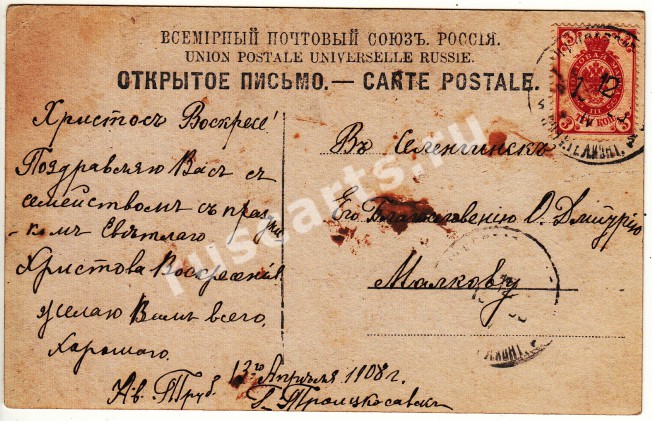 ВСЕМІРНЫЙ ПОЧТОВЫЙ СОЮЗЪ. РОССІЯ.
UNION POSTALE UNIVERSELLE RUSSIE.
ОТКРЫТОЕ ПИСЬМО. — CARTE POSTALE.
Христосъ Воскресе!
Поздравляю Васъ съ
семействомъ съ праздни
-комъ Свѣтлаго
Христова Воскресенія
желаю Вамъ всего
хорошаго.
13го Апрѣля 1908 г.
г. Троицкосавскъ
Въ Селенгинскъ
Его Благословенію О. Дмитрію
Малкову
3
3
КОП.
3
3
ruscarts.ru